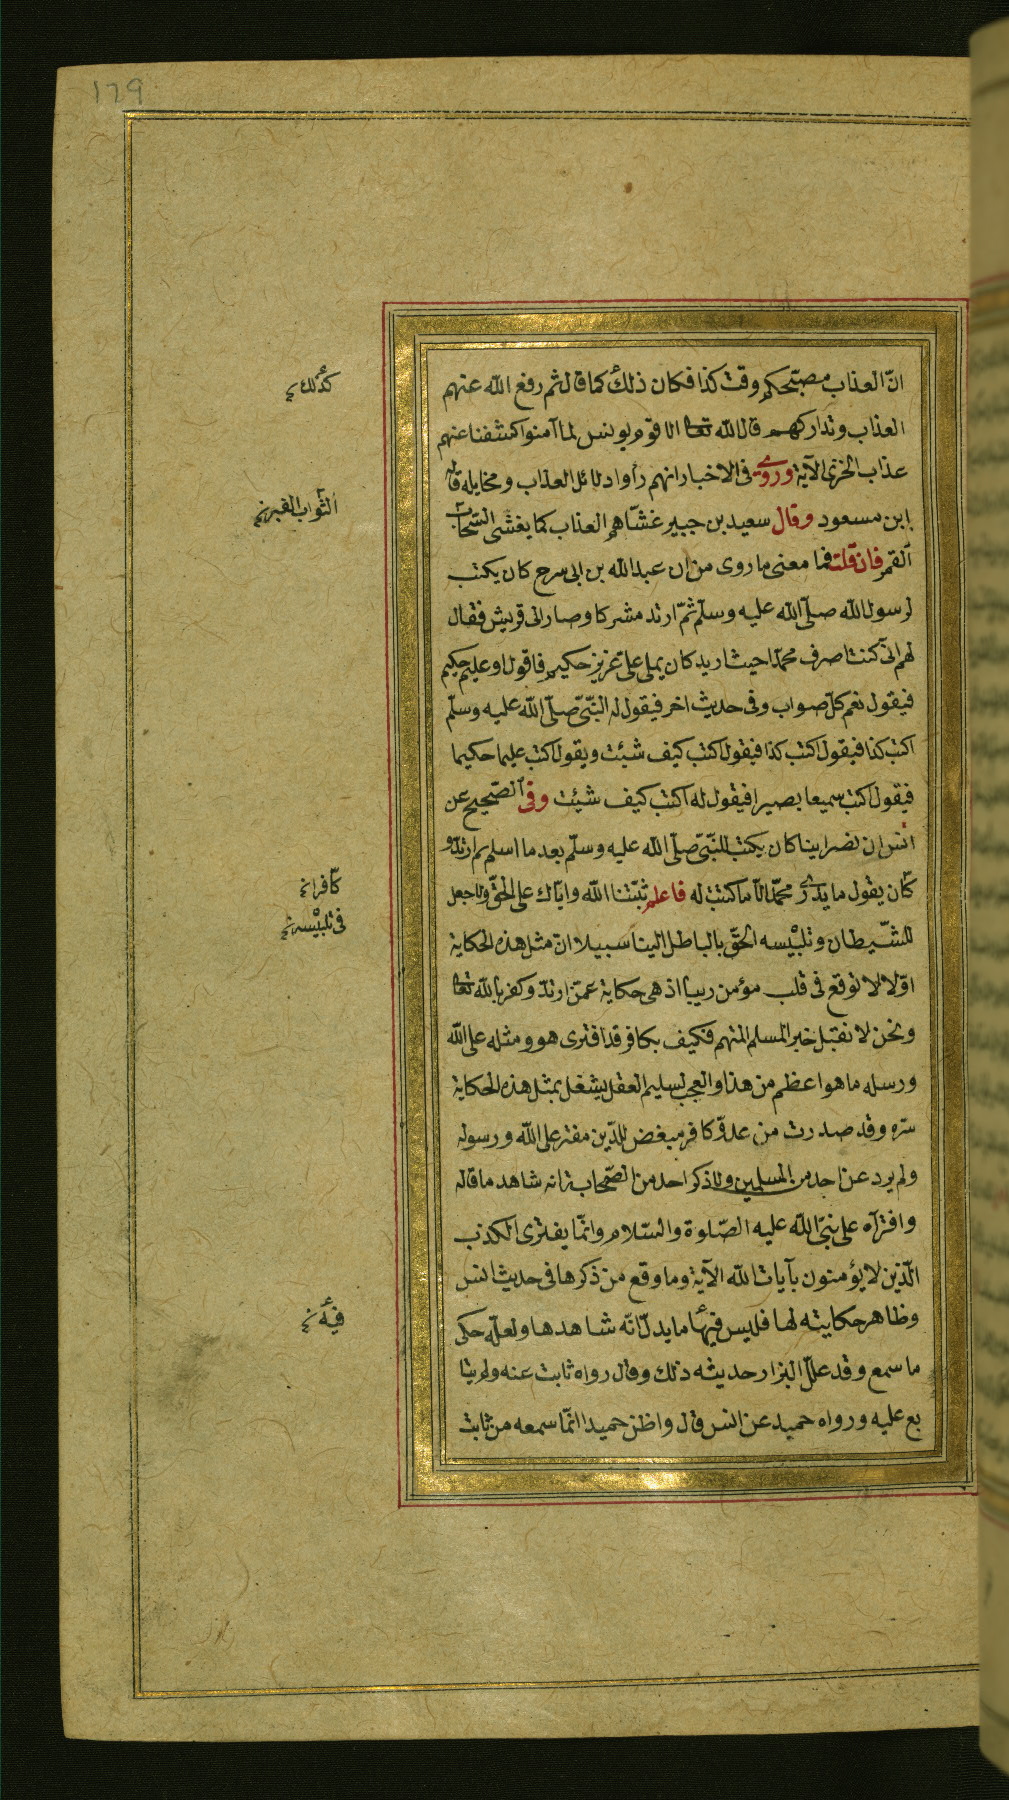 ١٦٩
انّ العذاب مصبّحكم وقت كذا فكان ذلك كما قال ثم رفع الله عنهم
العذاب وتداركهم قال الله تعا الا قوم يونس لما آمنوا كشفنا عنهم
عذاب الخزى الآية وروى فى الاخبار انهم رأوا دلائل العذاب ومخايله قاله
ابن مسعود وقال سعيد بن جبير غشّاهم العذاب كما يغشى السّحاب
القمر فان قلت فما معنى ما روى من ان عبد الله بن ابى سرح كان يكتب
لرسول الله صلّى الله عليه وسلّم ثمّ ارتد مشركا وصار الى قريش فقال
لهم انّى كنت اصرف محمّدا حيث اريد كان يملى علىّ عزيز حكيم فاقول او عليم حكيم
فيقول نعم كلّ صواب وفى حديث اخر فيقول له النّبىّ صلّى الله عليه وسلّم
اكتب كذا فيقول اكتب كذا فيقول اكتب كيف شئت ويقول اكتب عليما حكيما
فيقول اكتب سميعا بصيرا فيقول له اكتب كيف شيئت وفى الصّحيح عن
انس ان نصرانيا كان يكتب للنّبىّ صلّى الله عليه وسلّم بعد ما اسلم ثم ارتدّ و
كان يقول ما يدرى محمّد الّا ما كتبت له فاعلم ثبّتنا الله وايّاك على الحقّ ولا جعل
للشّيطان وتلبيسه الحقّ بالباطل الينا سبيلا انّ مثل هذه الحكاية
اوّلا لا توقع فى قلب مؤمن ريبا اذ هى حكاية عمّن ارتدّ وكفر بالله تعا
ونحن لا نقبل خبر المسلم المتهم فكيف بكافر قد افترى هو ومثله على الله
ورسله ما هو اعظم من هذا والعجب لسليم العقل يشغل بمثل هذه الحكاية
سّره وقد صدرت من عدوّ كافر مبغض للدّين مفتر على الله ورسوله
ولم يرد عن احد من المسلمين ولا ذكر احد من الصّحابة انه شاهد ما قاله
وافتراه على نبىّ الله عليه الصّلوة والسّلام وانّما يفترى الكذب
الّذين لا يؤمنون بآيات الله الآية وما وقع من ذكرها فى حديث انس
وظاهر حكايته لها فليس فيها ما يدلّ انّه شاهدها ولعلّه حكى
ما سمع وقد علل البزار حديثه ذلك وقال رواه ثابت عنه ولم يتا
بع عليه ورواه حميد عن انس قال واظن حميدا انّما سمعه من ثابت
كذلك
الثواب القبر
كافرا
فى تلبيسه
فيه